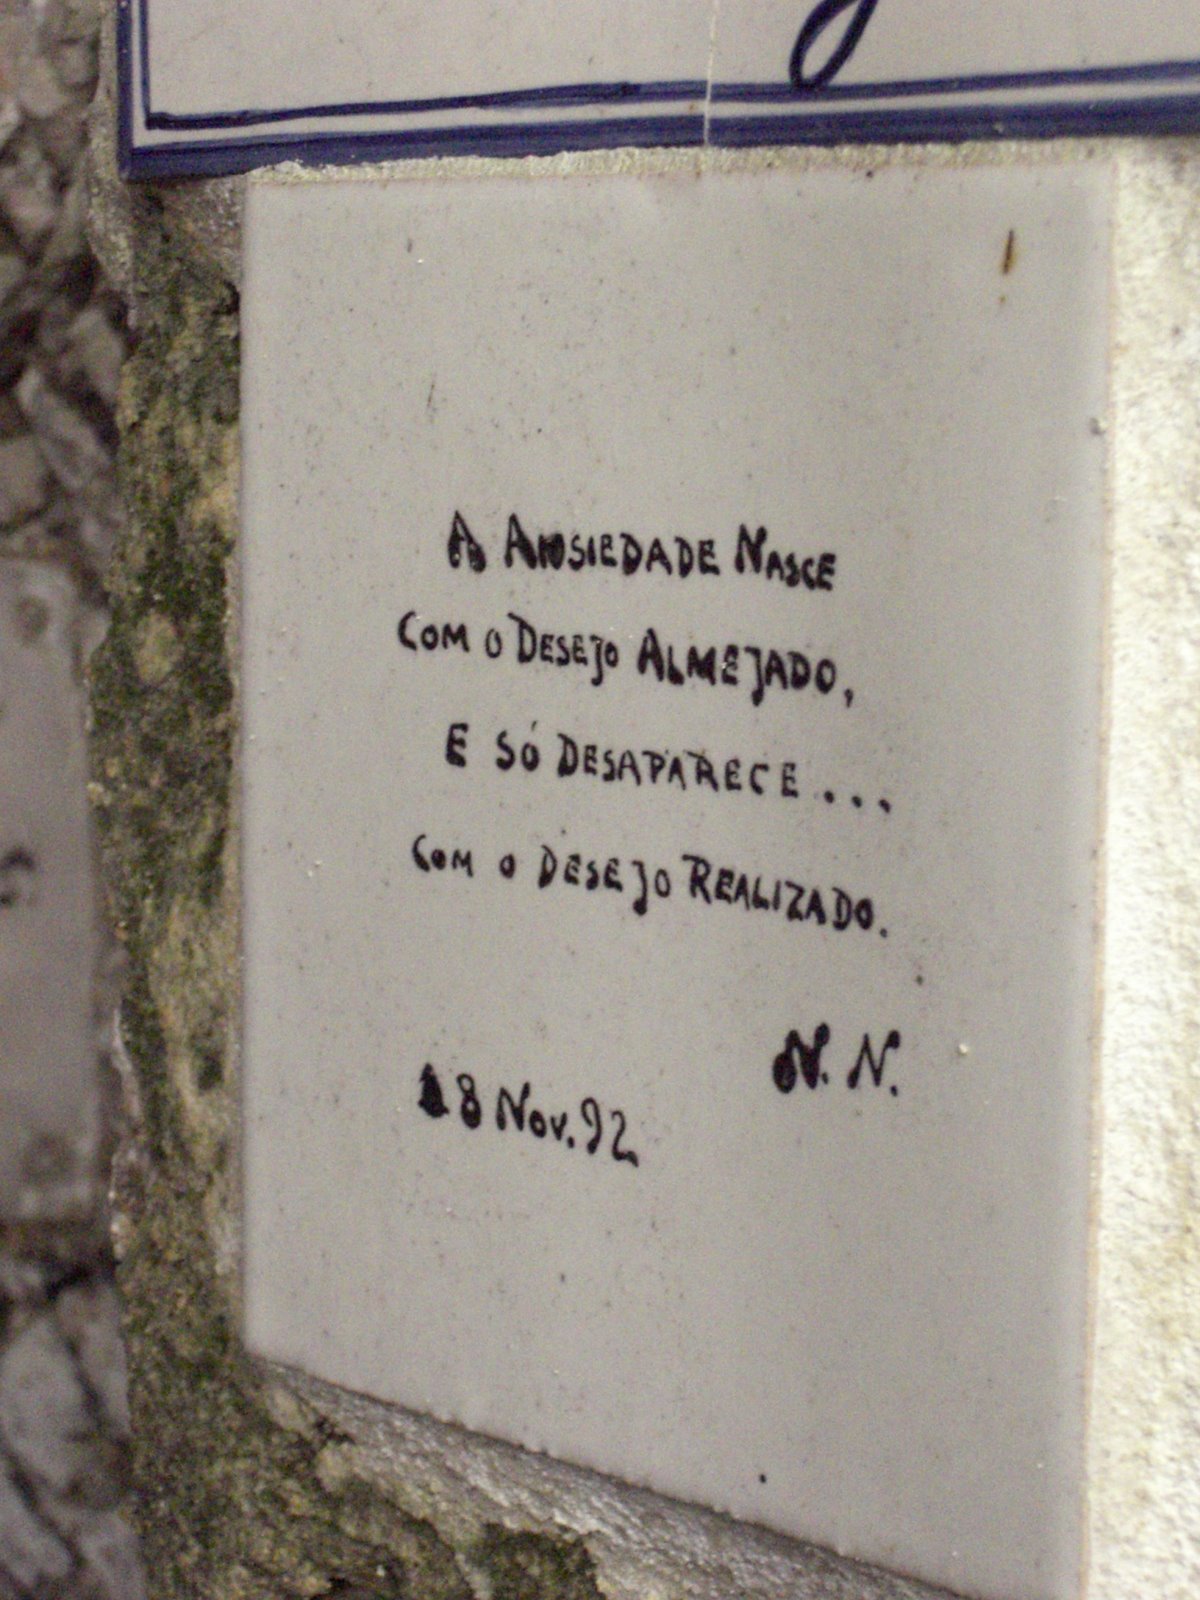 A ANSIEDADE NASCE
COM O DESEJO ALMEJADO,
E SÓ DESAPARECE...
COM O DESEJO REALIZADO.
N. N.
18 Nov. 92